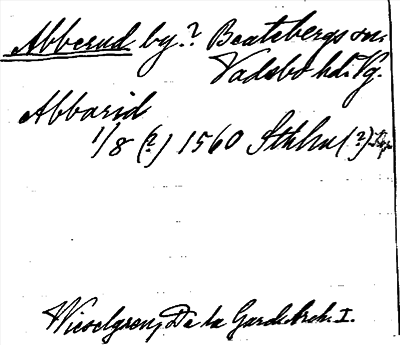 Abberud by? Beatebergs sn.
Vadsbo hd. Vg.
Abbarid
1/8 (?) 1560 Sthlm (?)
Wieselgren, De la Gard. Ark. I.